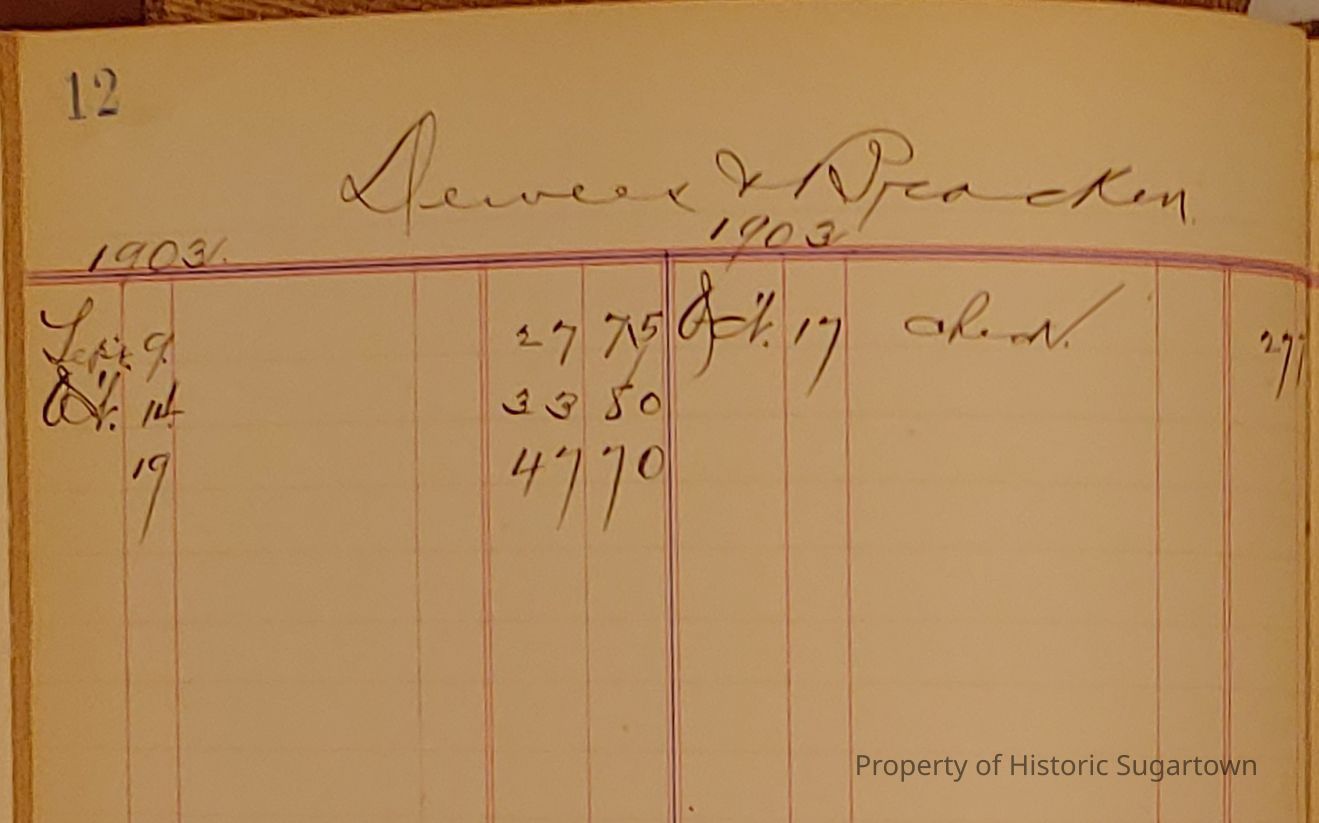 12
Dewees & Bracken
1903. 1903
Sept. 9. 27 75 Oct. 17 check. 277
Oct. 14 33 50
19 47 70
Property of Historic Sugartown